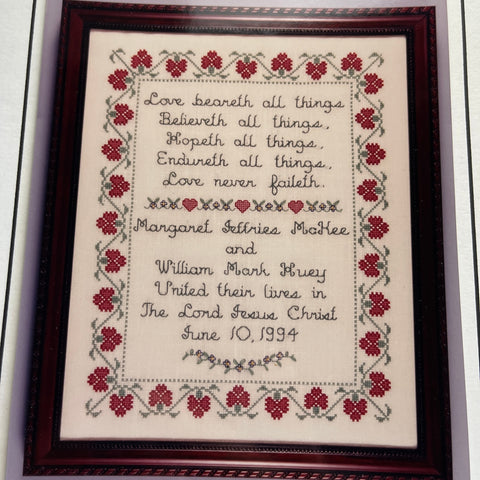 Love beareth all things
Believeth all things,
Hopeth all things,
Endureth all things,
Love never faileth.
Margaret Jeffries McKee
and
William Mark Huey
United their lives in
The Lord Jesus Christ
June 10, 1994